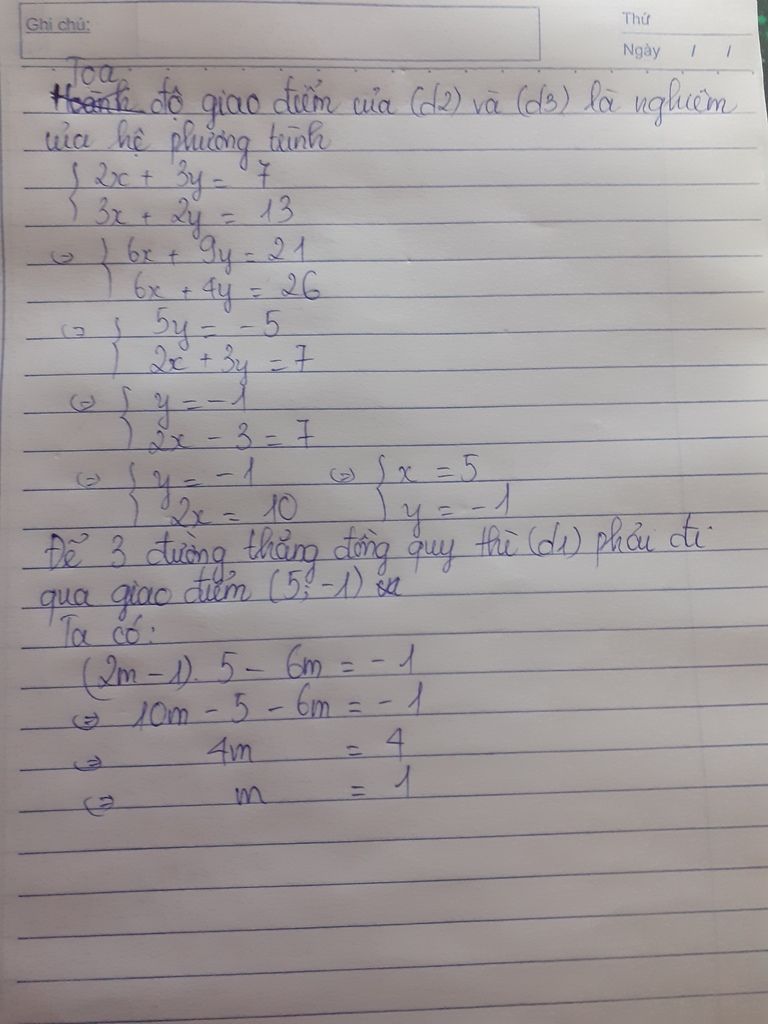 Ghi chú:
Thứ
Ngày / /
Toạ
Hoành độ giao điểm của (d2) và (d3) là nghiệm
của hệ phương trình
{ 2x + 3y = 7
3x + 2y = 13
⇔ { 6x + 9y = 21
6x + 4y = 26
⇔ { 5y = -5
2x + 3y = 7
⇔ { y = -1
2x - 3 = 7
⇔ { y = -1 ⇔ { x = 5
2x = 10 y = -1
Để 3 đường thẳng đồng quy thì (d1) phải đi
qua giao điểm (5; -1)
Ta có:
(2m - 1). 5 - 6m = -1
⇔ 10m - 5 - 6m = -1
⇔ 4m = 4
⇔ m = 1